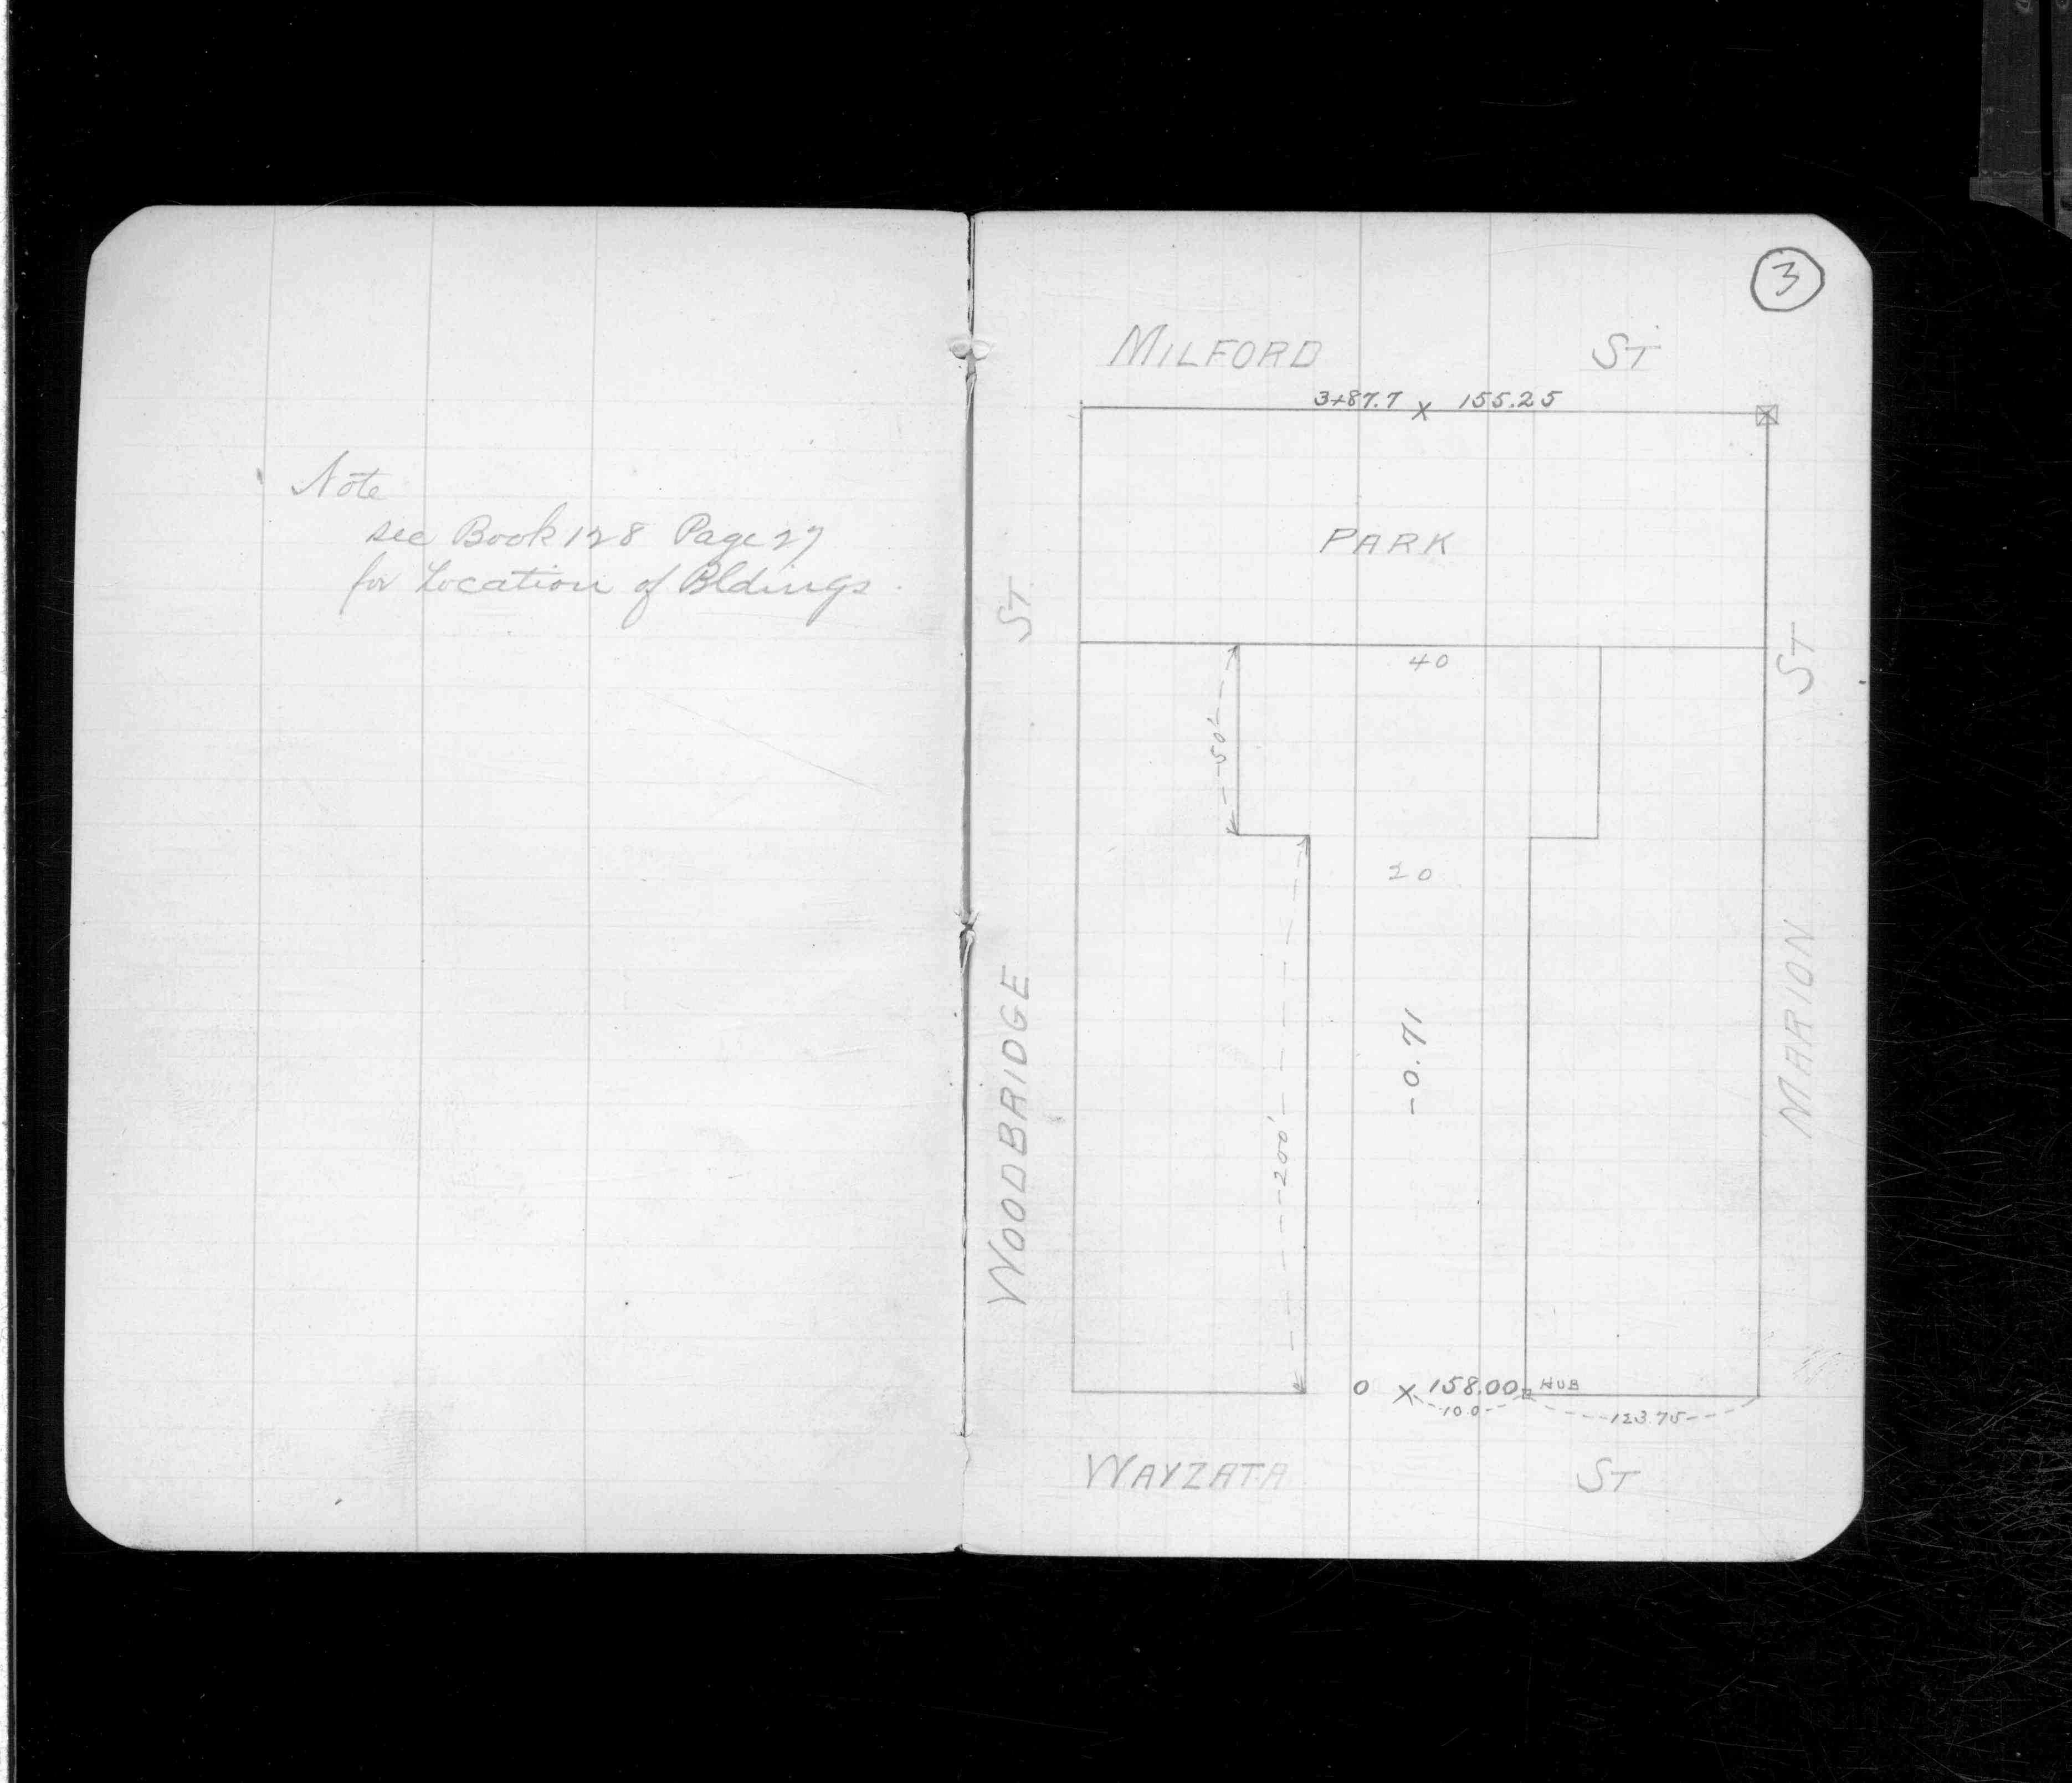 Note
see Book 128 Page 27
for Location of Bldings.
3
MILFORD ST
3+87.7 x 155.25
PARK
ST
ST
40
50'
20
-0.71
MARION
WOODBRIDGE
200'
0 x 158.00 HUB
10.0
123.75
WAYZATA ST